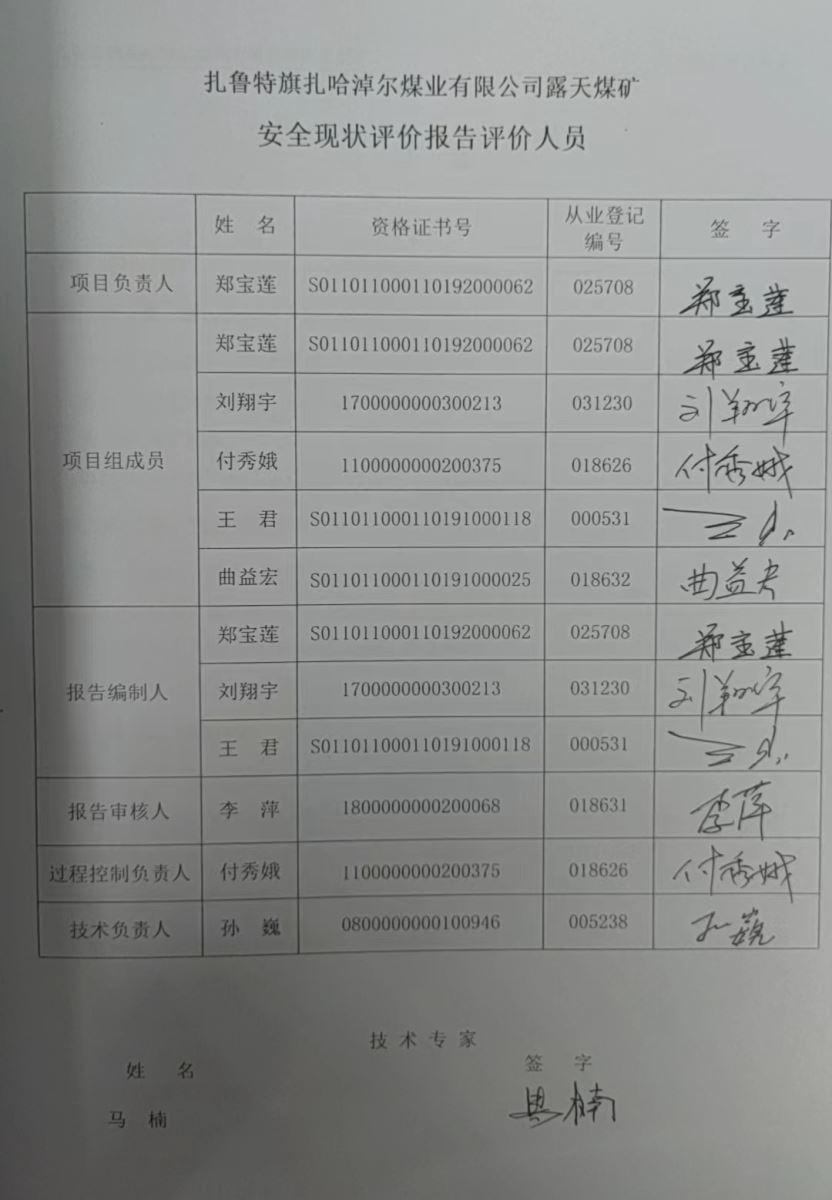 扎鲁特旗扎哈淖尔煤业有限公司露天煤矿
安全现状评价报告评价人员
姓 名 资格证书号 从业登记编号 签 字
项目负责人 郑宝莲 S011011000110192000062 025708 郑宝莲
项目组成员 郑宝莲 S011011000110192000062 025708 郑宝莲
刘翔宇 1700000000300213 031230 刘翔宇
付秀娥 1100000000200375 018626 付秀娥
王 君 S011011000110191000118 000531 王君
曲益宏 S011011000110191000025 018632 曲益宏
报告编制人 郑宝莲 S011011000110192000062 025708 郑宝莲
刘翔宇 1700000000300213 031230 刘翔宇
王 君 S011011000110191000118 000531 王君
报告审核人 李 萍 1800000000200068 018631 李萍
过程控制负责人 付秀娥 1100000000200375 018626 付秀娥
技术负责人 孙 巍 0800000000100946 005238 孙巍
技 术 专 家
姓 名 签 字
马 楠 马楠